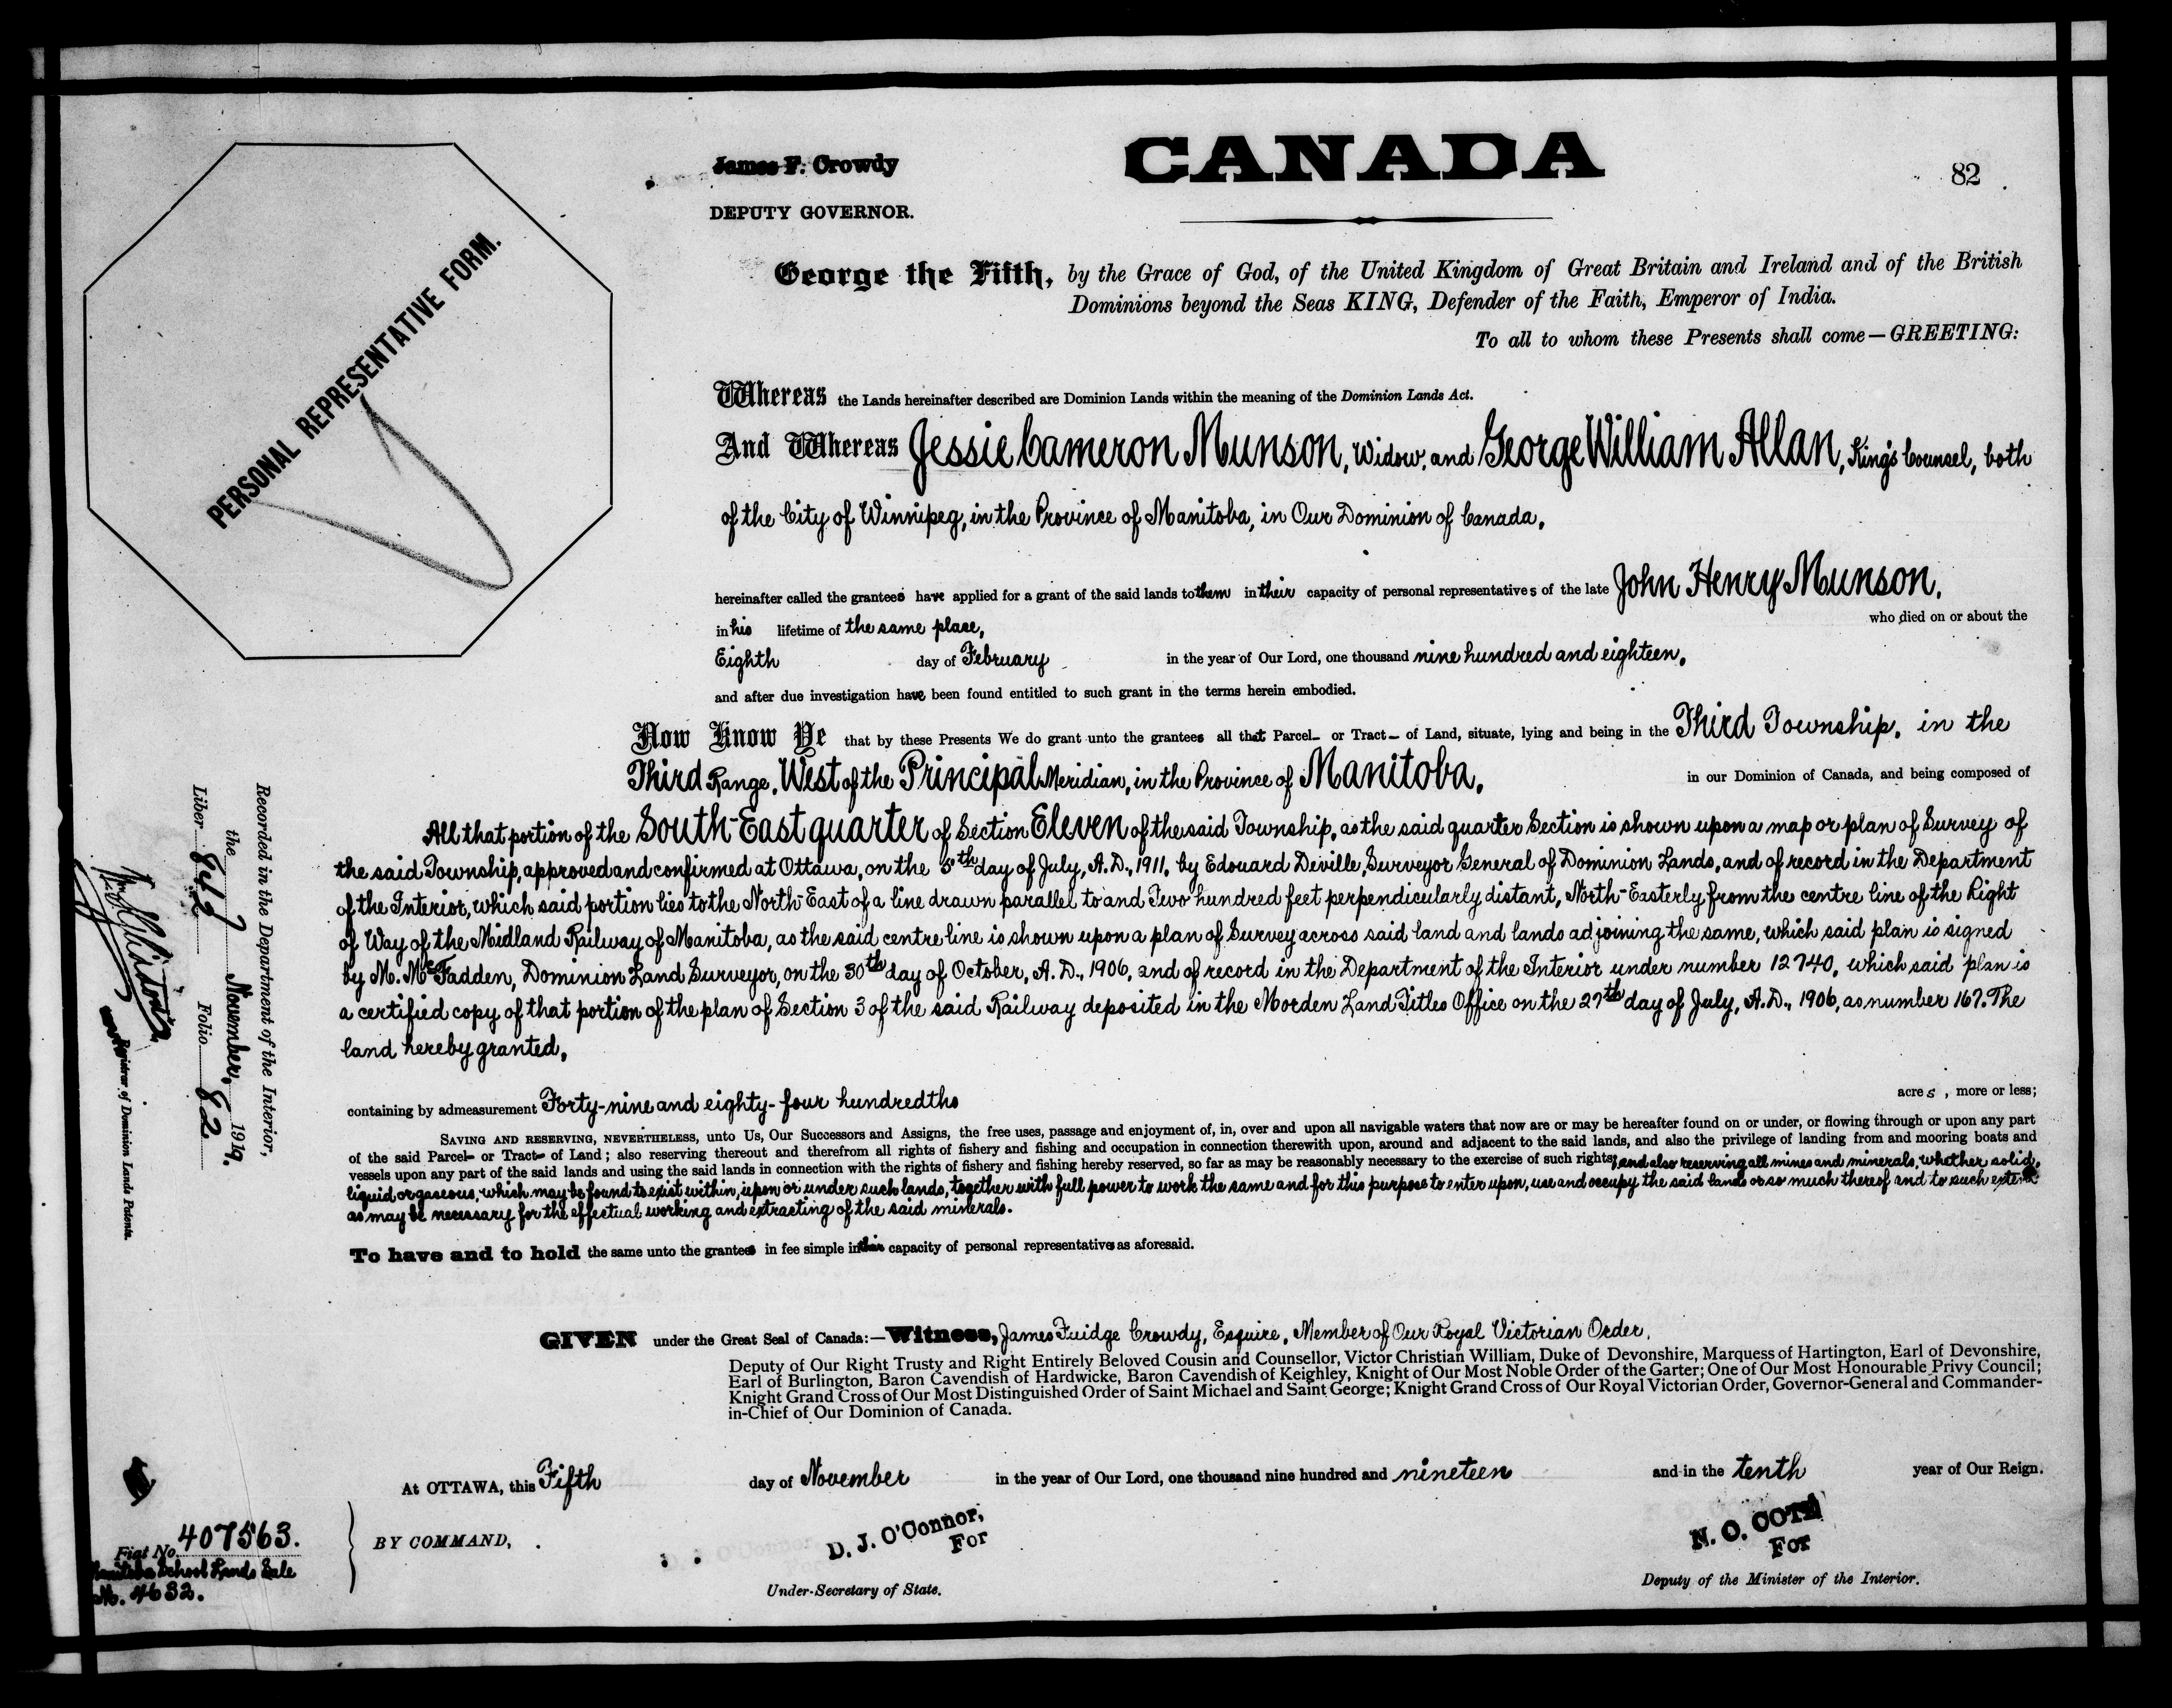 CANADA
James F. Crowdy
82
DEPUTY GOVERNOR.
PERSONAL REPRESENTATIVE FORM.
George the Fifth, by the Grace of God, of the United Kingdom of Great Britain and Ireland and of the British
Dominions beyond the Seas KING, Defender of the Faith, Emperor of India.
To all to whom these Presents shall come—GREETING:
Whereas the Lands hereinafter described are Dominion Lands within the meaning of the Dominion Lands Act.
And Whereas Jessie Cameron Munson, Widow, and George William Allan, King's Counsel, both
of the City of Winnipeg, in the Province of Manitoba, in Our Dominion of Canada,
hereinafter called the grantees have applied for a grant of the said lands to them in their capacity of personal representatives of the late John Henry Munson,
in his lifetime of the same place, who died on or about the
Eighth day of February in the year of Our Lord, one thousand nine hundred and eighteen,
and after due investigation have been found entitled to such grant in the terms herein embodied.
Now Know Ye that by these Presents We do grant unto the grantees all that Parcel or Tract of Land, situate, lying and being in the Third Township, in the
Third Range, West of the Principal Meridian, in the Province of Manitoba, in our Dominion of Canada, and being composed of
All that portion of the South-East quarter of Section Eleven of the said Township, as the said quarter Section is shown upon a map or plan of Survey of
the said Township, approved and confirmed at Ottawa, on the 5th day of July, A.D., 1911, by Edouard Deville, Surveyor General of Dominion Lands, and of record in the Department
of the Interior, which said portion lies to the North-East of a line drawn parallel to and Two hundred feet perpendicularly distant, North-Easterly from the centre line of the Right
of Way of the Midland Railway of Manitoba, as the said centre line is shown upon a plan of Survey across said land and lands adjoining the same, which said plan is signed
by M. McFadden, Dominion Land Surveyor, on the 30th day of October, A.D., 1906, and of record in the Department of the Interior under number 12740, which said plan is
a certified copy of that portion of the plan of Section 3 of the said Railway deposited in the Morden Land Titles Office on the 27th day of July, A.D., 1906, as number 167. The
land hereby granted,
containing by admeasurement Forty-nine and eighty-four hundredths acres, more or less;
SAVING AND RESERVING, NEVERTHELESS, unto Us, Our Successors and Assigns, the free uses, passage and enjoyment of, in, over and upon all navigable waters that now are or may be hereafter found on or under, or flowing through or upon any part
of the said Parcel or Tract of Land; also reserving thereout and therefrom all rights of fishery and fishing and occupation in connection therewith upon, around and adjacent to the said lands, and also the privilege of landing from and mooring boats and
vessels upon any part of the said lands and using the said lands in connection with the rights of fishery and fishing hereby reserved, so far as may be reasonably necessary to the exercise of such rights; and also reserving all mines and minerals, whether solid,
liquid or gaseous, which may be found to exist within, upon or under such lands, together with full power to work the same and for this purpose to enter upon, use and occupy the said lands or so much thereof and to such extent
as may be necessary for the effectual working and extracting of the said minerals.
To have and to hold the same unto the grantees in fee simple in their capacity of personal representatives as aforesaid.
GIVEN under the Great Seal of Canada:—Witness, James Fuidge Crowdy, Esquire, Member of Our Royal Victorian Order,
Deputy of Our Right Trusty and Right Entirely Beloved Cousin and Counsellor, Victor Christian William, Duke of Devonshire, Marquess of Hartington, Earl of Devonshire,
Earl of Burlington, Baron Cavendish of Hardwicke, Baron Cavendish of Keighley, Knight of Our Most Noble Order of the Garter; One of Our Most Honourable Privy Council;
Knight Grand Cross of Our Most Distinguished Order of Saint Michael and Saint George; Knight Grand Cross of Our Royal Victorian Order, Governor-General and Commander-
in-Chief of Our Dominion of Canada.
At OTTAWA, this Fifth day of November in the year of Our Lord, one thousand nine hundred and nineteen and in the tenth year of Our Reign.
BY COMMAND,
D. J. O'Connor,
For
Under-Secretary of State.
N. O. COTE
For
Deputy of the Minister of the Interior.
Recorded in the Department of the Interior,
the November, 1919.
Liber Folio 82
Registrar of Dominion Lands Patents.
Fiat No. 407563.
Manitoba School Lands Sale
No. 4632.